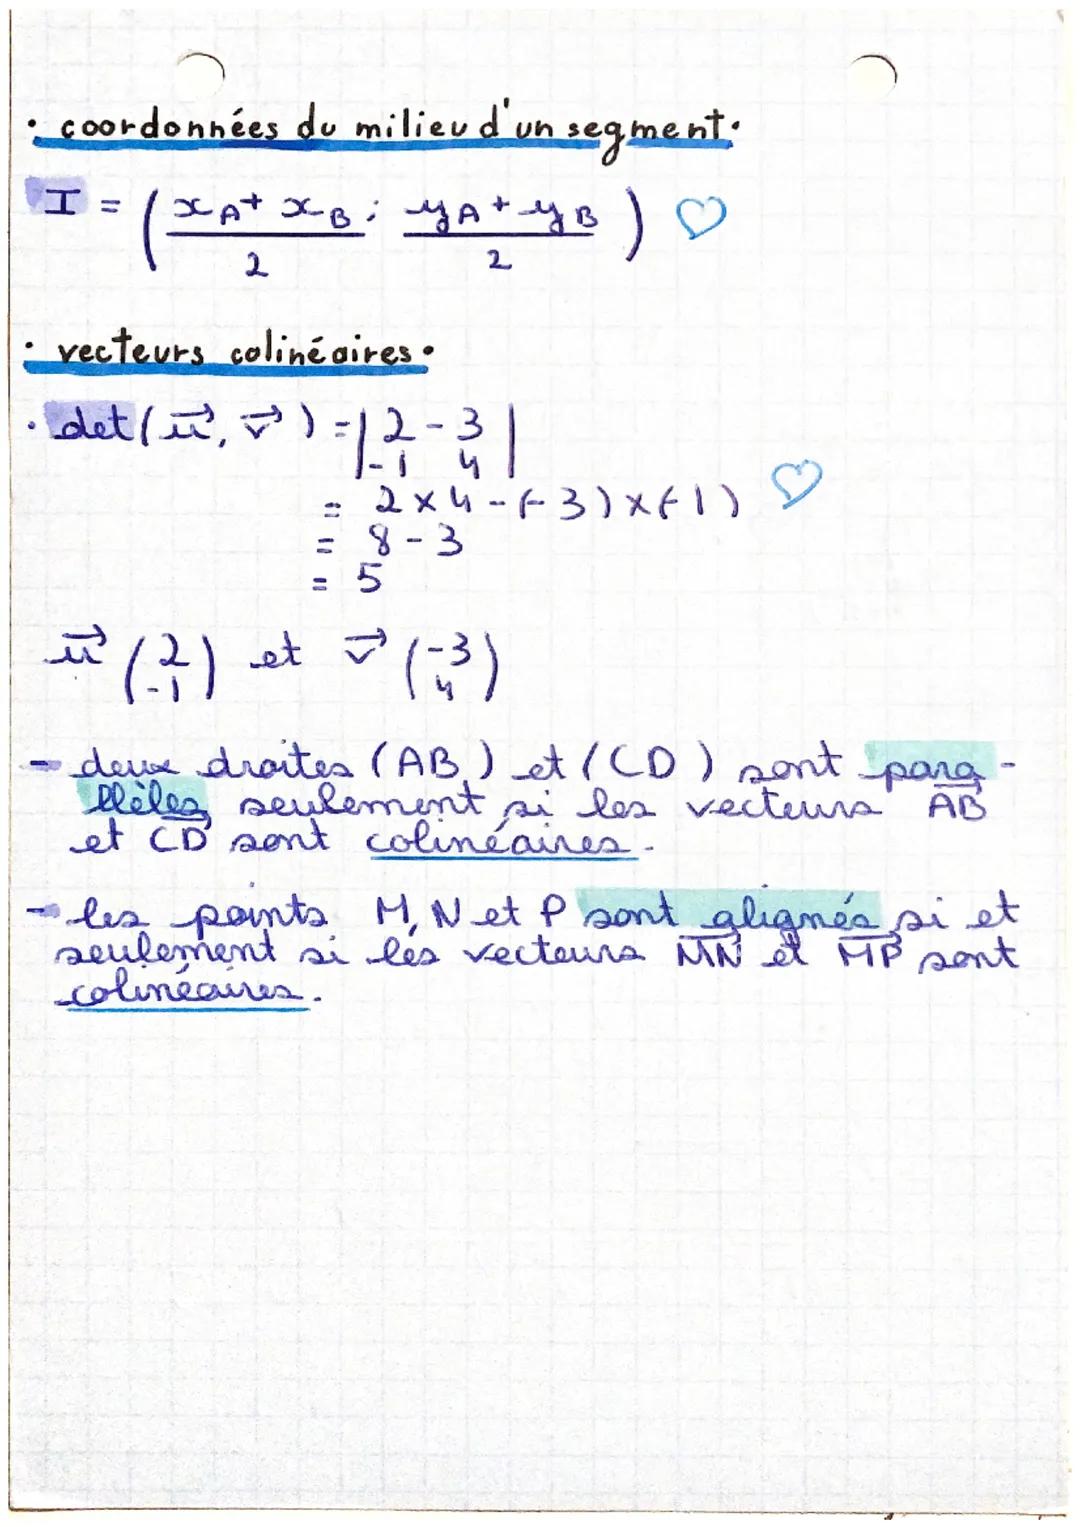 · coordonnées du milieu d'un segment·
I = ( xA + xB / 2 ; yA + yB / 2 )
· vecteurs colinéaires·
· det(u⃗, v⃗) = | 2 -3 |
| -1 4 |
= 2 × 4 - (-3) × (-1)
= 8 - 3
= 5
u⃗ (2 -1) et v⃗ (-3 4)
- deux droites (AB) et (CD) sont para-
llèles seulement si les vecteurs A⃗B⃗
et C⃗D⃗ sont colinéaires.
- les points M, N et P sont alignés si et
seulement si les vecteurs M⃗N⃗ et M⃗P⃗ sont
colinéaires.